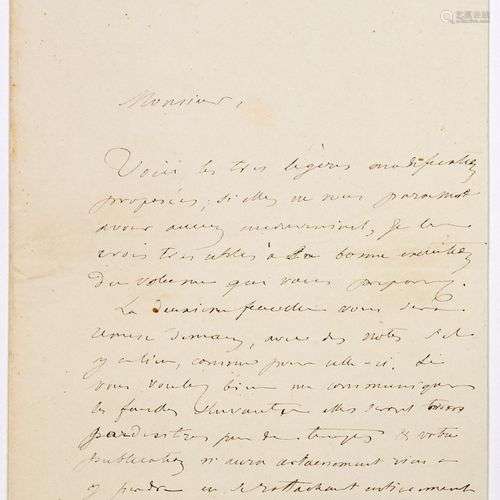 Monsieur,
Voici les très légères modifications
proposées; si elles ne vous paraissent
avoir aucun inconvénient, je les
crois très utiles à la bonne
du volume que vous préparez.
La deuxième feuille vous sera
remise demain, avec des notes s'il
y a lieu, comme pour celle-ci. Si
vous voulez bien me communiquer
les feuilles suivantes elles seront
peu de temps & votre
publication n'aura certainement rien
y perdre en se rattachant entièrement